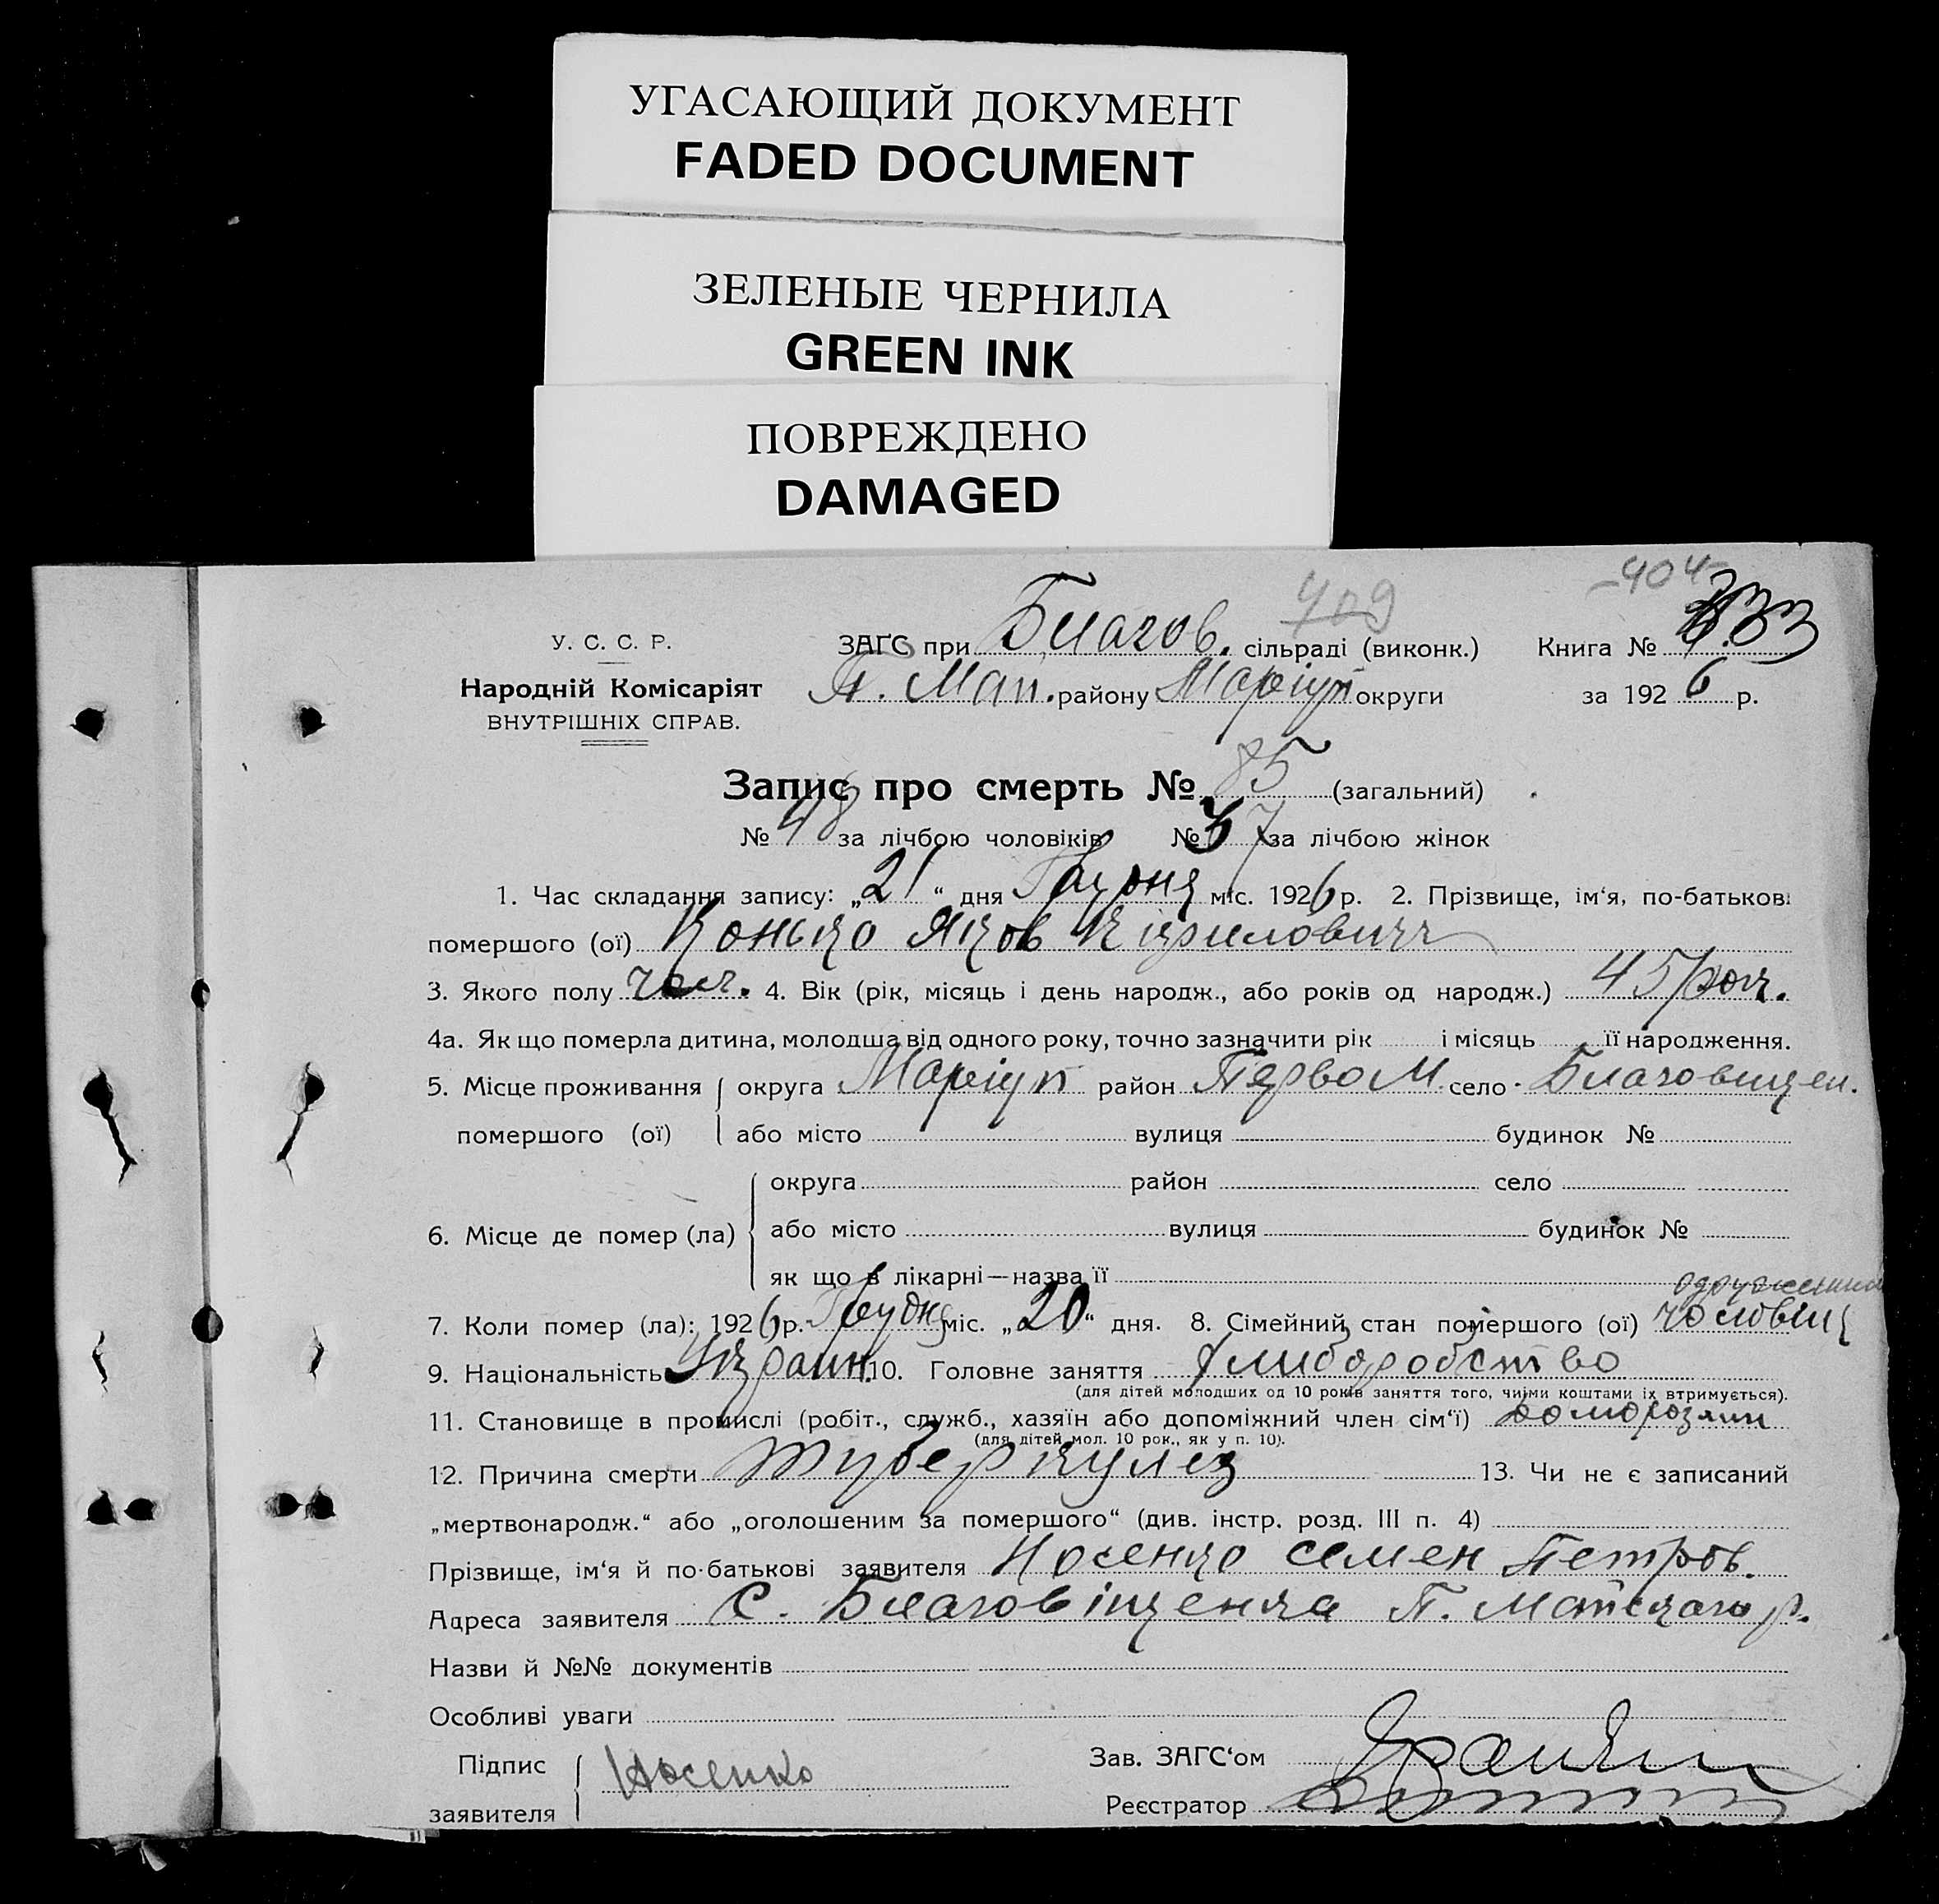 УГАСАЮЩИЙ ДОКУМЕНТ
FADED DOCUMENT
ЗЕЛЕНЫЕ ЧЕРНИЛА
GREEN INK
ПОВРЕЖДЕНО
DAMAGED
-404-
409
У. С. С. Р.
Народній Комісаріят
ВНУТРІШНІХ СПРАВ.
ЗАГС при Благов. сільраді (виконк.) Книга №
П. Май. району Маріуп округи за 1926 р.
Запис про смерть № 85 (загальний)
№ 48 за лічбою чоловіків № 37 за лічбою жінок
1. Час складання запису: „21“ дня Грудня міс. 1926 р. 2. Прізвище, ім‘я, по-батькові
помершого (ої) Конько Яков Кирилович
3. Якого полу чол. 4. Вік (рік, місяць і день народж., або років од народж.) 45 роч.
4а. Як що померла дитина, молодша від одного року, точно зазначити рік і місяць її народження.
5. Місце проживання округа Маріуп район ПервоМ. село Благовищен.
помершого (ої) або місто вулиця будинок №
округа район село
6. Місце де помер (ла) або місто вулиця будинок №
як що в лікарні—назва її
одружений
7. Коли помер (ла): 1926 р. Грудня міс. „20“ дня. 8. Сімейний стан помершого (ої) чоловік
9. Національність Украин. 10. Головне заняття хлиборобство
(для дітей молодших од 10 років заняття того, чиїми коштами їх втримується).
11. Становище в промислі (робіт., служб., хазяїн або допоміжний член сім‘ї) домохозяин
(для дітей мол. 10 рок., як у п. 10).
12. Причина смерти туберкулез 13. Чи не є записаний
„мертвонародж.“ або „оголошеним за помершого“ (див. інстр. розд. III п. 4)
Прізвище, ім‘я й по-батькові заявителя Носенко Семен Петров.
Адреса заявителя с. Благовіщенка П. Майского р.
Назви й №№ документів
Особливі уваги
Підпис
заявителя Носенко
Зав. ЗАГС‘ом
Реєстратор